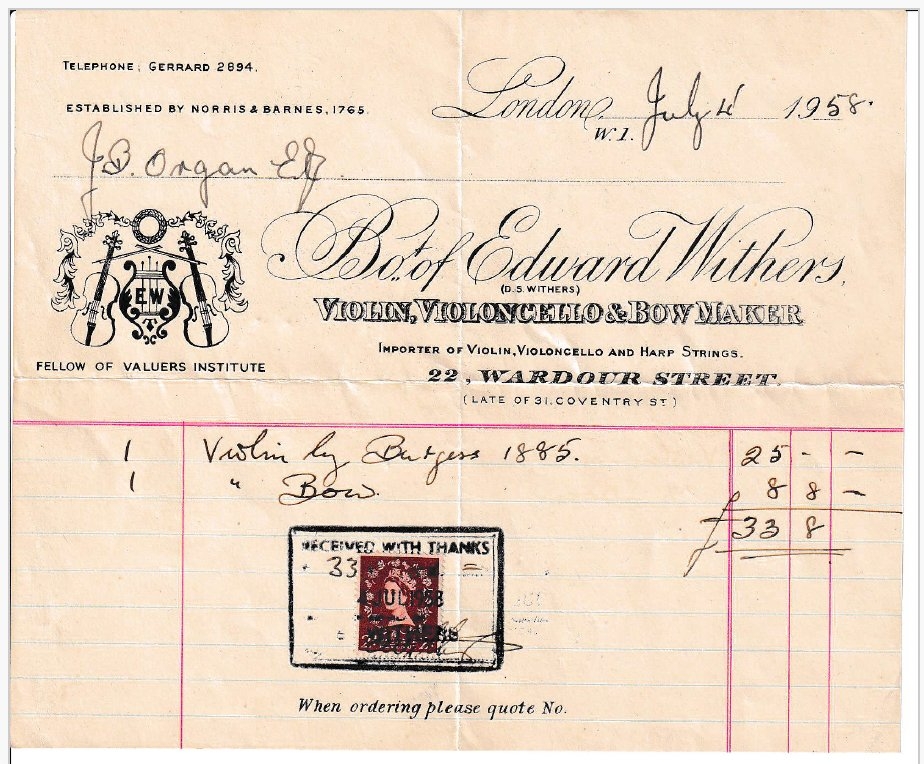 TELEPHONE; GERRARD 2894.
ESTABLISHED BY NORRIS & BARNES, 1765.
London, W.1. July 4 1958.
J B. Organ Esq
Bot. of Edward Withers,
(D. S. WITHERS)
E.W
VIOLIN, VIOLONCELLO & BOW MAKER
IMPORTER OF VIOLIN, VIOLONCELLO AND HARP STRINGS.
FELLOW OF VALUERS INSTITUTE
22, WARDOUR STREET.
(LATE OF 31. COVENTRY ST)
1 Violin by Burgess 1885. 25 - -
1 " Bow. 8 8 -
£33 8
RECEIVED WITH THANKS
33 =
4 JUL 1958
WITHERS
When ordering please quote No.